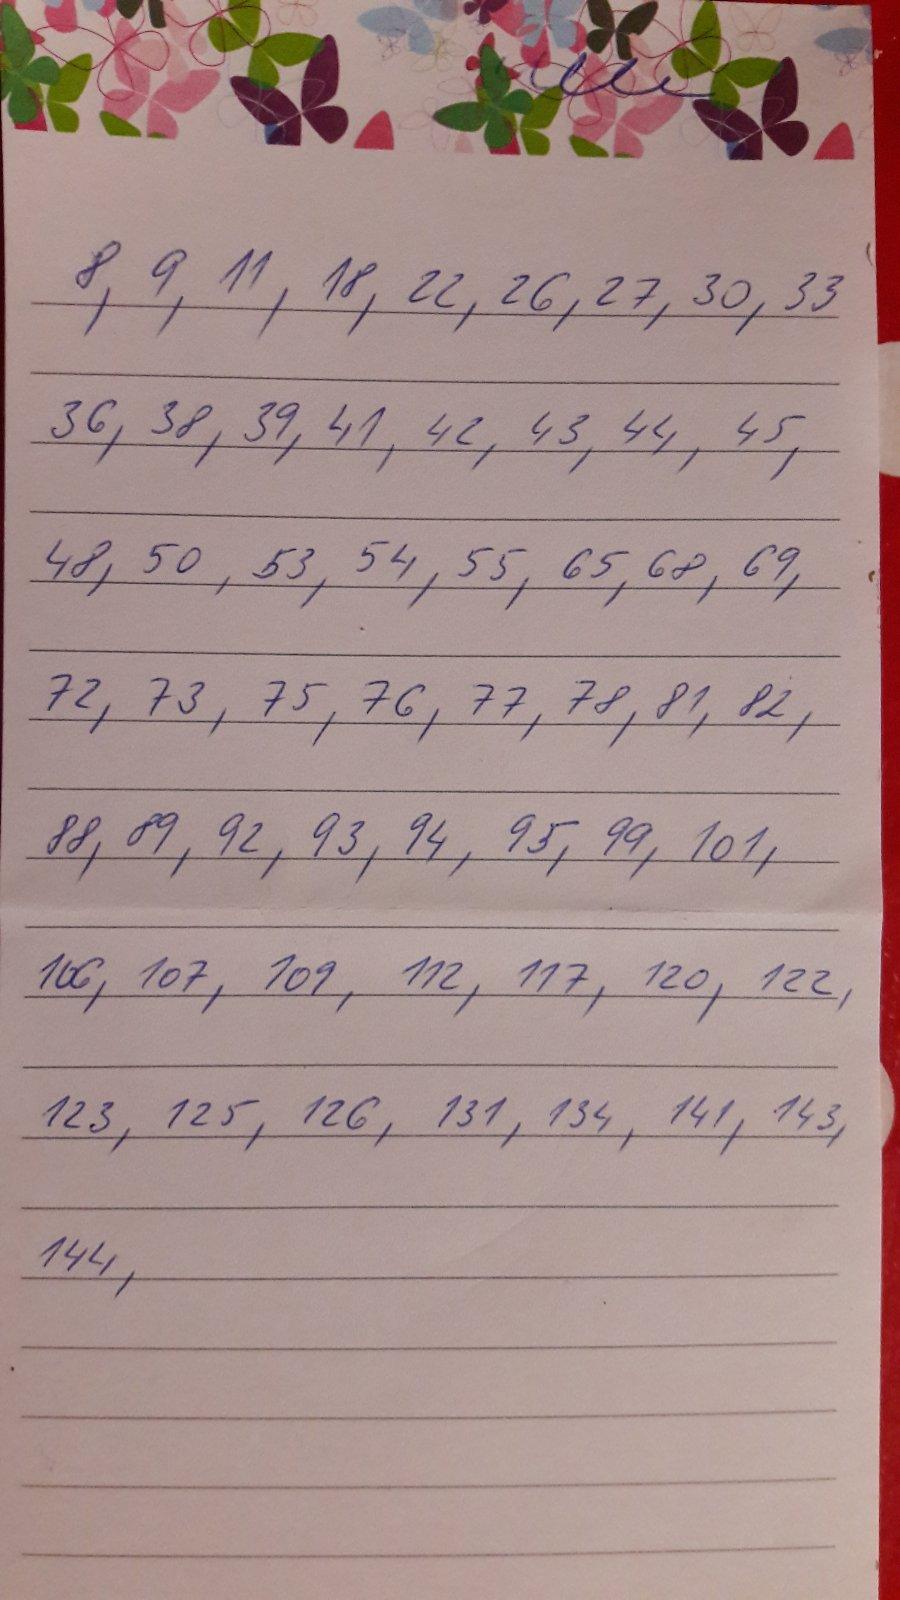 8, 9, 11, 18, 22, 26, 27, 30, 33
36, 38, 39, 41, 42, 43, 44, 45,
48, 50, 53, 54, 55, 65, 68, 69,
72, 73, 75, 76, 77, 78, 81, 82,
88, 89, 92, 93, 94, 95, 99, 101,
106, 107, 109, 112, 117, 120, 122,
123, 125, 126, 131, 134, 141, 143,
144,